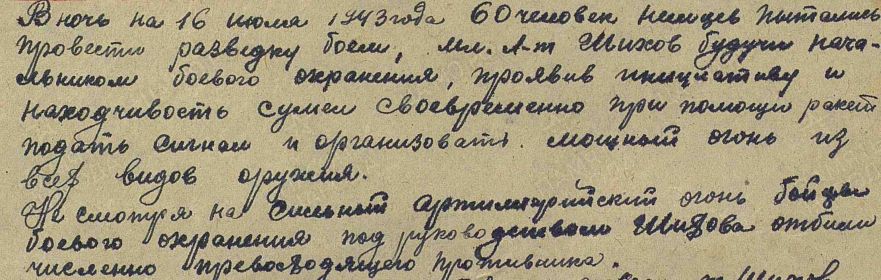 В ночь на 16 июля 1943 года 60 человек немцев пытались
провести разведку боем, мл. л-т Шихов будучи нача-
льником боевого охранения, проявив инициативу и
находчивость сумел своевременно при помощи ракет
подать сигнал и организовать мощный огонь из
всех видов оружия.
Не смотря на сильный артиллерийский огонь бойцы
боевого охранения под руководством Шихова отбили
численно превосходящего противника.
Шихов